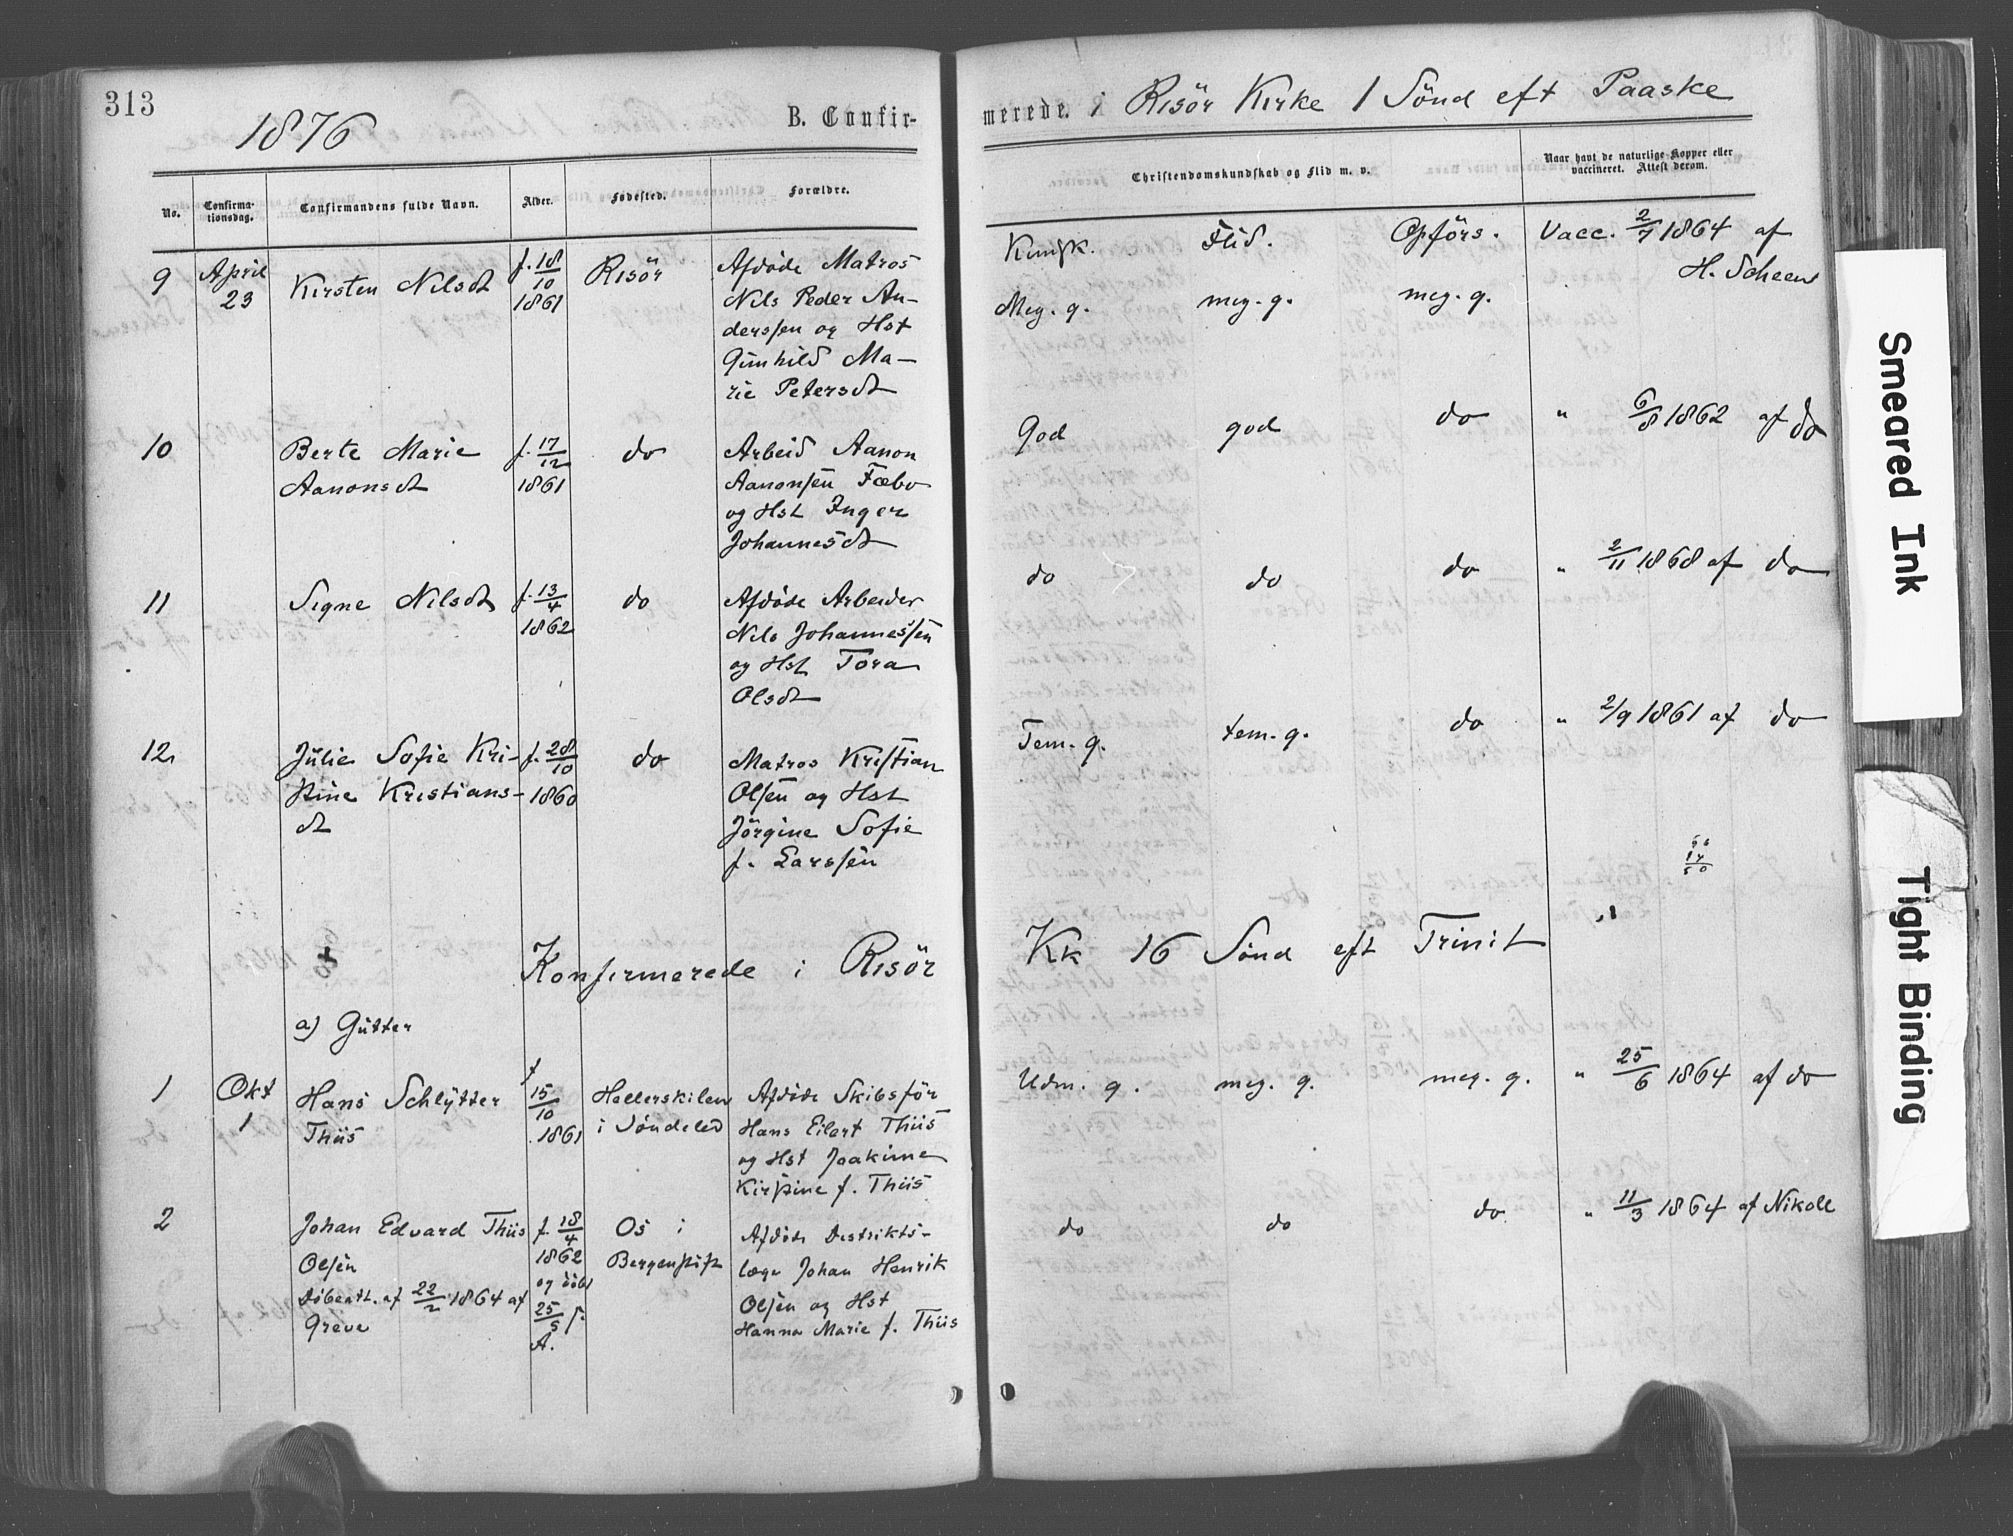 313
1876
B. Confir-
merede. i Risör Kirke 1 Sönd eft Paaske
No.
Confirma-
tionsdag.
Confirmandens fulde Navn.
Alder.
Fødested.
Forældre.
Christendomskundskab og Flid m. v.
Naar havt de naturlige Kopper eller
vaccineret. Attest derom.
Kundsk. Flid. Opförs.
9
April
23
Kirsten Nilsdt
f. 18/10
1861
Risör
Afdöde Matros
Nils Peder An-
derssen og Hst
Gunhild Ma-
rie Petersdt
Meg. g. meg. g. meg. g.
Vacc. 2/7 1864 af
H. Scheen
10
Berte Marie
Aanonsdt
f. 17/12
1861
do
Arbeid Aanon
Aanonsen Fæbo
og Hst Inger
Johannesdt
God god do " 6/8 1862 af do
11
Signe Nilsdt
f. 13/4
1862
do
Afdöde Arbeider
Nils Johannessen
og Hst Tora
Olsdt
do do do " 2/11 1868 af do
12
Julie Sofie Kri-
stine Kristians-
dt
f. 28/10
1860
do
Matros Kristian
Olsen og Hst
Jörgine Sofie
f. Larssen
Tem. g. tem. g. do " 2/9 1861 af do
Konfirmerede i Risör Kk 16 Sönd eft Trinit
a) Gutter
1
Okt
1
Hans Schlytter
Thiis
f
15/10
1861
Hellerskilen
i Söndeled
Afdöde Skibsför
Hans Eilert Thiis
og Hst Joakime
Kirstine f. Thiis
Udm. g. meg. g. meg. g. " 25/6 1864 af do
2
Johan Edvard Thiis
Olsen
Döbeatt. af 22/2 1864 af
Greve
f. 18/4
1862
og döbt
25/5 s.
A.
Os i
Bergenstift
Afdöde Distrikts-
læge Johan Henrik
Olsen og Hst
Hanna Marie f. Thiis
do do do " 11/3 1864 af Nikoll
Smeared Ink
Tight Binding